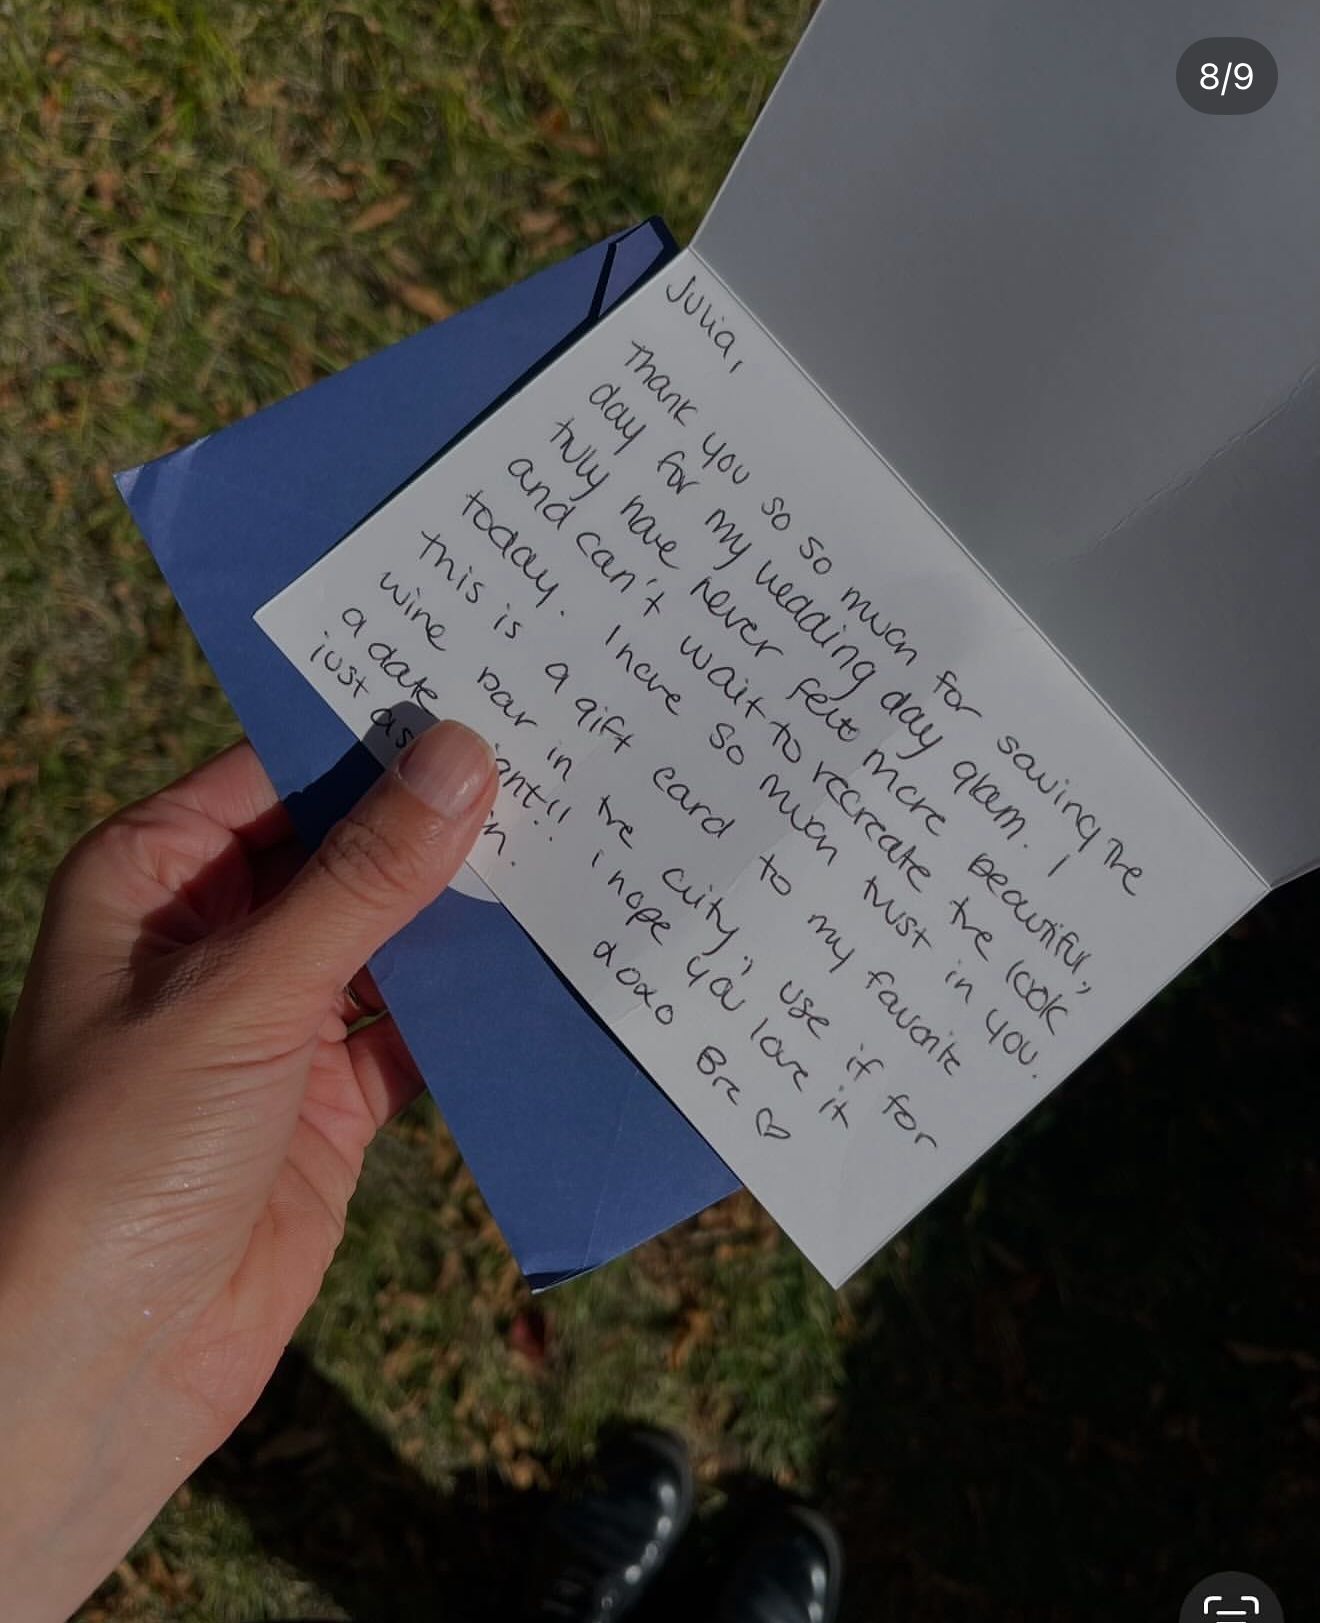 8/9
Julia,
Thank you so so much for saving the
day for my wedding day glam. I
truly have never felt more beautiful,
and can't wait to recreate the look
today. I have so much trust in you.
this is a gift card to my favorite
wine bar in the city, use if for
a date !! i hope you love it
just as xoxo Bre ♡